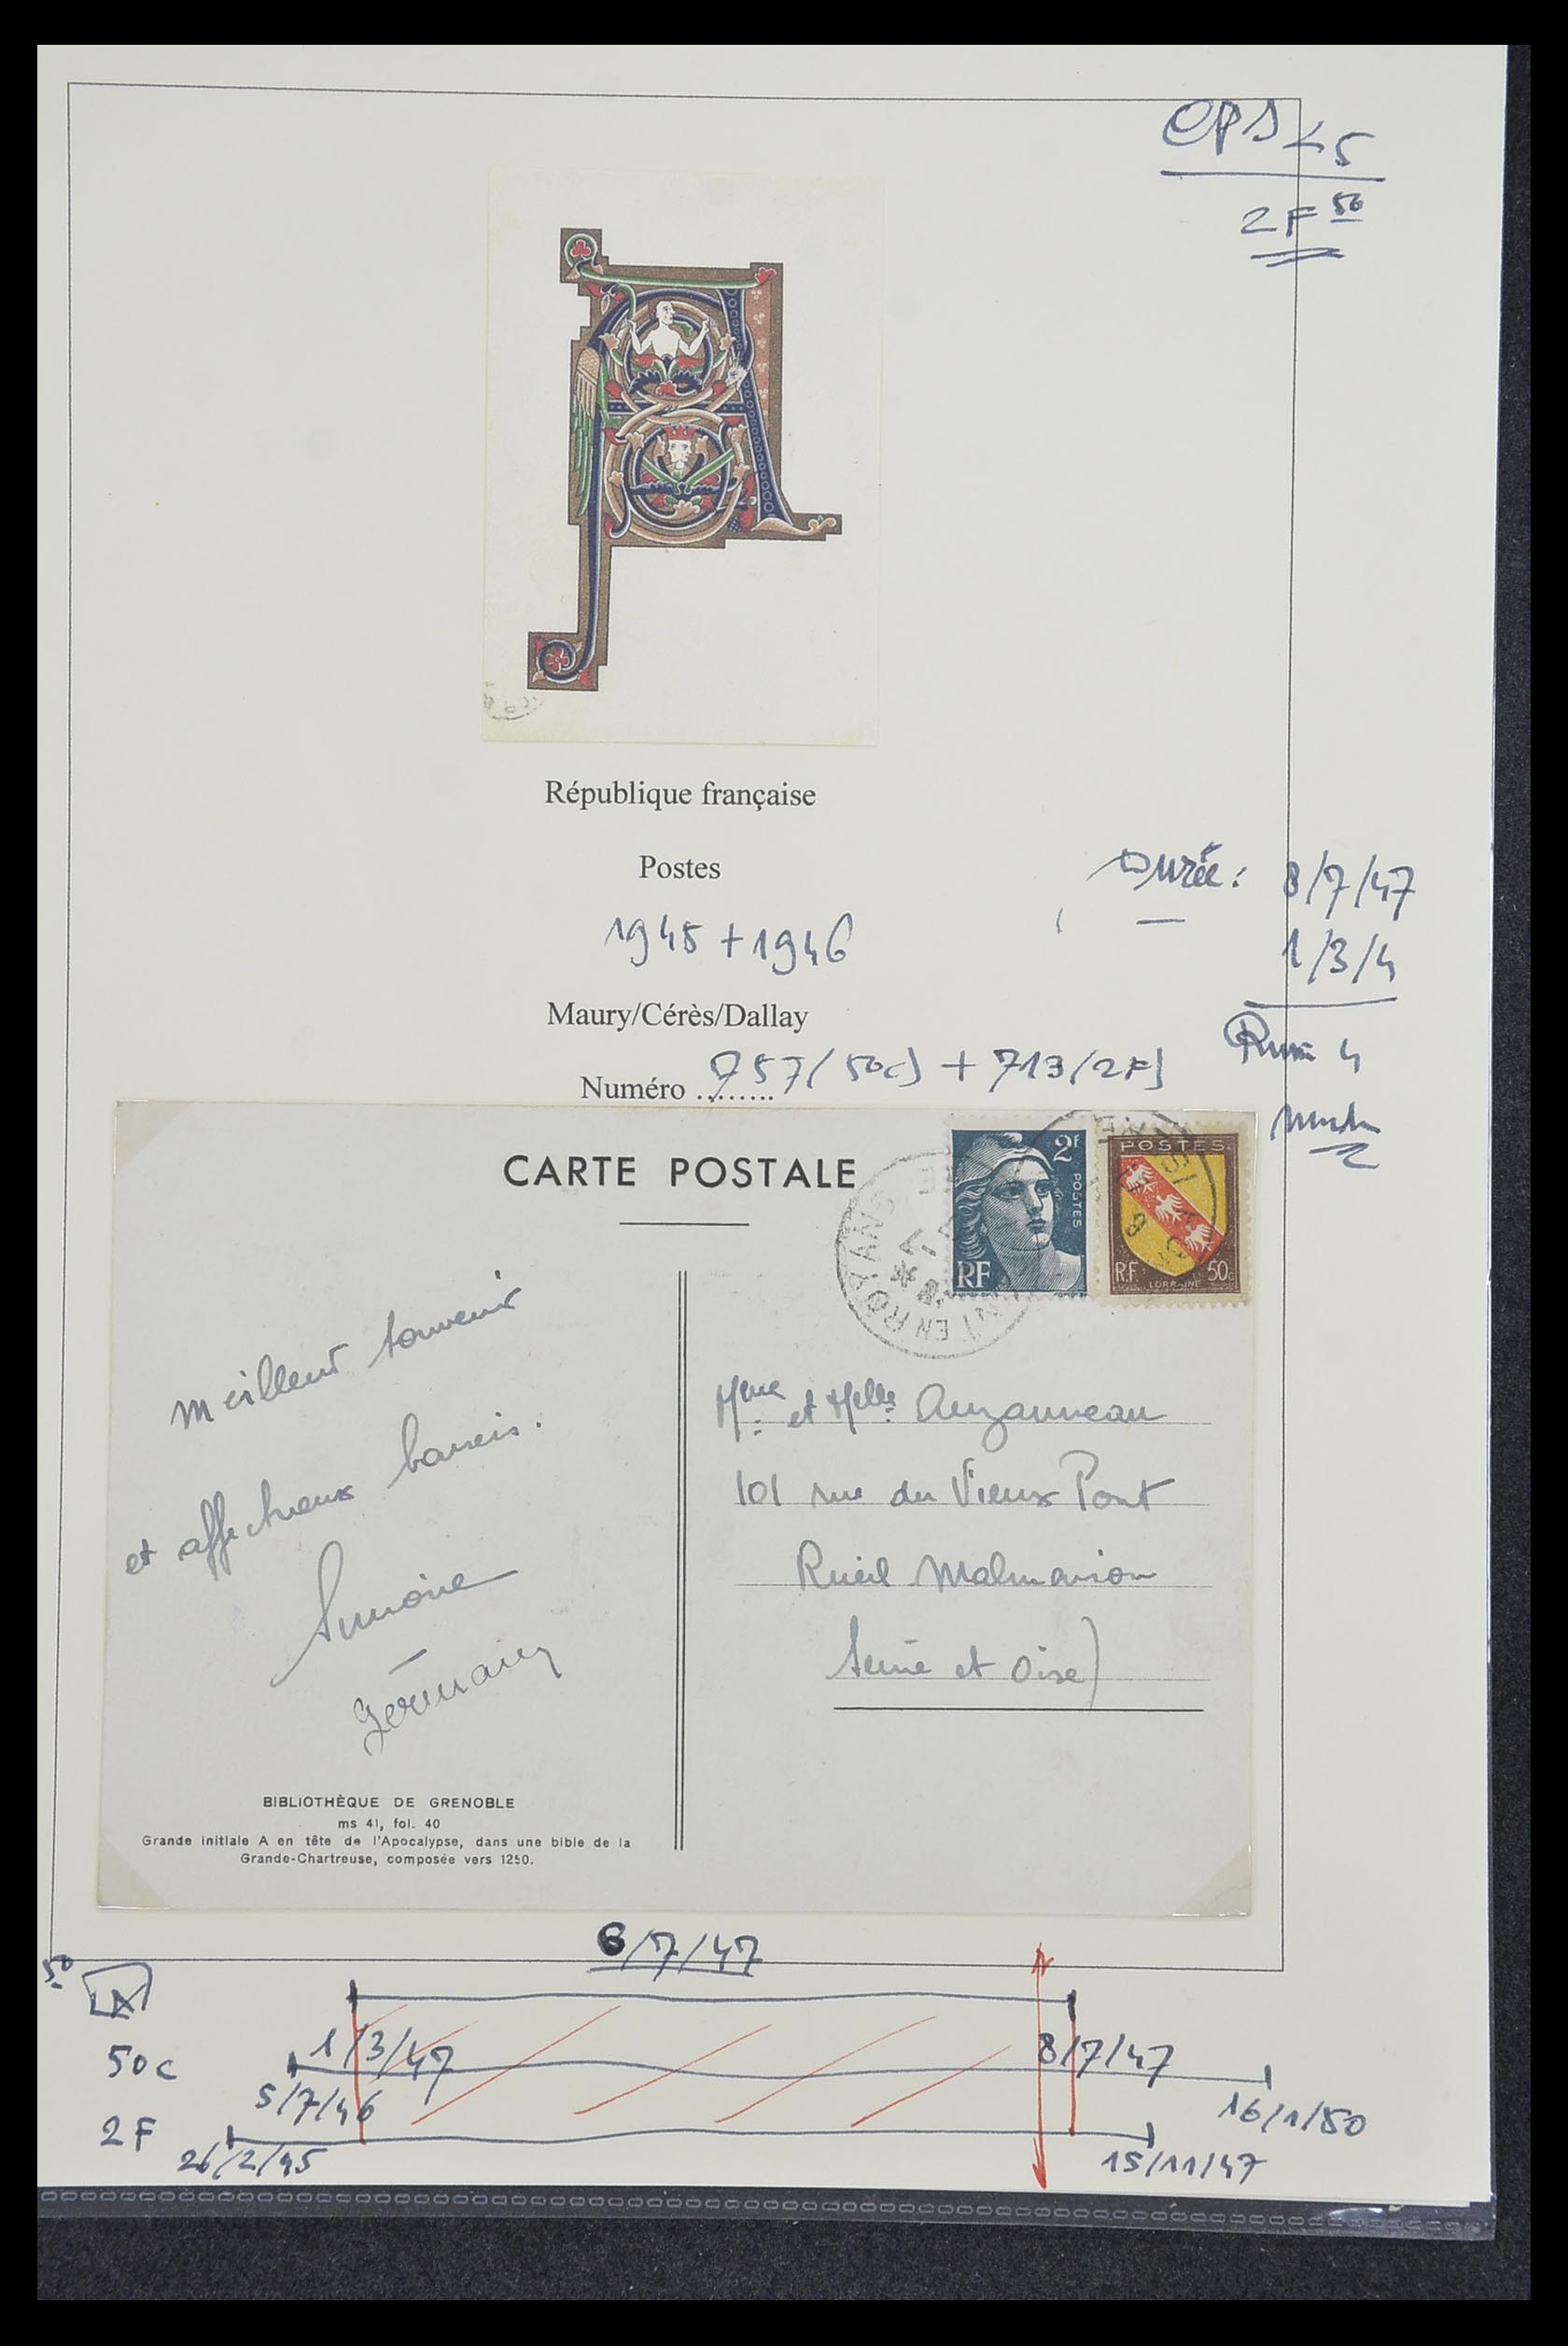 CPS < 5
2F 50
République française
Postes
1945 + 1946
Durée : 8/7/47
1/3/4
Maury/Cérès/Dallay
4
Numéro ........ 757 (50c) + 713 (2F)
CARTE POSTALE
2F
POSTES
RF
POSTES
RF
50c
LORRAINE
EN ROYANS
meilleur souvenir
et affectueux baisers.
Simone
Germain
Mme et Melle Auzanneau
101 rue du Vieux Pont
Rueil Malmaison
Seine et Oise)
BIBLIOTHÈQUE DE GRENOBLE
ms 41, fol. 40
Grande initiale A en tête de l'Apocalypse, dans une bible de la
Grande-Chartreuse, composée vers 1250.
8/7/47
50
1/3/47
8/7/47
50c
5/7/46
16/1/50
2F
26/2/45
15/11/47